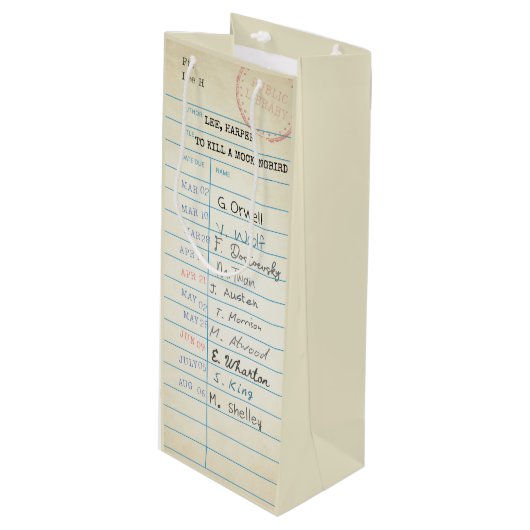 PUBLIC
LIBRARY
AUTHOR LEE, HARPER
TITLE TO KILL A MOCKINGBIRD
DATE DUE NAME
MAR 02 G. Orwell
MAR 10 V. Woolf
MAR 28 F. Dostoevsky
Twain
APR 21 J. Austen
MAY 02 T. Morrison
MAY 25 M. Atwood
JUN 09 E. Wharton
JULY 05 S. King
AUG 06 M. Shelley